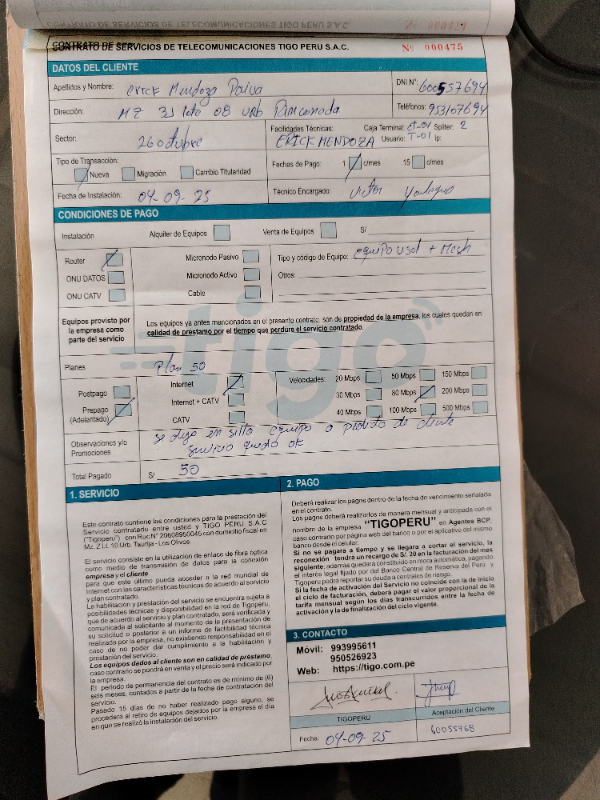 CONTRATO DE SERVICIOS DE TELECOMUNICACIONES TIGO PERU S.A.C. Nº 000475
DATOS DEL CLIENTE
Apellidos y Nombre: Erick Mendoza Paiva DNI Nº: 60055769
Dirección: MZ 31 lote 08 urb Rinconada Teléfonos:
Sector: 26 octubre Facilidades Técnicas: Caja Terminal: CT-01 Spliter: 2
ERICK MENDOZA Usuario: T-01 Ip:
Tipo de Transacción: Nueva Migración Cambio Titularidad Fechas de Pago: 1 c/mes 15 c/mes
Fecha de Instalación: 04-09-25 Técnico Encargado: Victor
CONDICIONES DE PAGO
Instalación Alquiler de Equipos Venta de Equipos S/
Router Micronodo Pasivo Tipo y código de Equipo: equipo usol + Mech
ONU DATOS Micronodo Activo Otros:
ONU CATV Cable
Equipos provisto por la empresa como parte del servicio
Los equipos ya antes mencionados en el presente contrato, son de propiedad de la empresa, los cuales quedan en
calidad de prestamo por el tiempo que perdure el servicio contratado.
tigo
Planes Plan 50
Postpago Internet Velocidades: 20 Mbps 50 Mbps 150 Mbps
Prepago (Adelantado) Internet + CATV 30 Mbps 80 Mbps 200 Mbps
CATV 40 Mbps 100 Mbps 500 Mbps
Observaciones y/o Promociones
se dejo en sitio equipo a pedido de cliente
servicio quedo ok
Total Pagado S/ 50
1. SERVICIO
Este contrato contiene las condiciones para la prestación del
Servicio contratado entre usted y TIGO PERU S.A.C
("Tigoperu") con Ruc:N° 20608950045 con domicilio fiscal en
Mz. Z Lt. 10 Urb. Taurija - Los Olivos.
El servicio consiste en la utilización de enlace de fibra óptica
como medio de transmisión de datos para la conexión
empresa y el cliente
para que este último pueda acceder a la red mundial de
Internet con las características técnicas de acuerdo al servicio
y plan contratado.
Le habilitación y prestación del servicio se encuentra sujeto a
posibilidades técnicas y disponibilidad en la red de Tigoperu,
que de acuerdo al servicio y plan contratado, será verificada y
comunicada al solicitante al momento de la presentación de
su solicitud o posterior a un informe de factibilidad técnica
realizada por la empresa, no existiendo responsabilidad en el
caso de no poder dar cumplimiento a la habilitación y
prestación del servicio.
Los equipos dados al cliente son en calidad de préstamo,
caso contrario se pondrá en venta y el precio será indicado por
la empresa.
El periodo de permanencia del contrato es de mínimo de (6)
seis meses, contados a partir de la fecha de contratación del
servicio.
Pasado 15 días de no haber realizado pago alguno, se
procederá al retiro de equipos dejados por la empresa el día
en que se realizó la instalación del servicio.
2. PAGO
Deberá realizar los pagos dentro de la fecha de vencimiento señalada
en el contrato.
Los pagos deberá realizarlos de manera mensual y anticipada con el
nombre de la empresa "TIGOPERU" en Agentes BCP,
caso contrario por página web del banco o por el aplicativo del mismo
banco desde el celular.
Si no se pagara a tiempo y se llegara a cortar el servicio, la
reconexión tendrá un recargo de S/. 20 en la facturación del mes
siguiente, además quedara constituido en mora automática, pagando
el interés legal fijado por del Banco Central de Reserva del Peru y
Tigoperu podrá reportar su deuda a centrales de riesgo.
Si la fecha de activación del Servicio no coincide con la de inicio
del ciclo de facturación, deberá pagar el valor proporcional de la
tarifa mensual según los días transcurridos entre la fecha de
activación y la de finalización del ciclo vigente.
3. CONTACTO
Móvil: 993995611
950526923
Web: https://tigo.com.pe
TIGOPERU Aceptación del Cliente
Fecha: 04-09-25 60055768